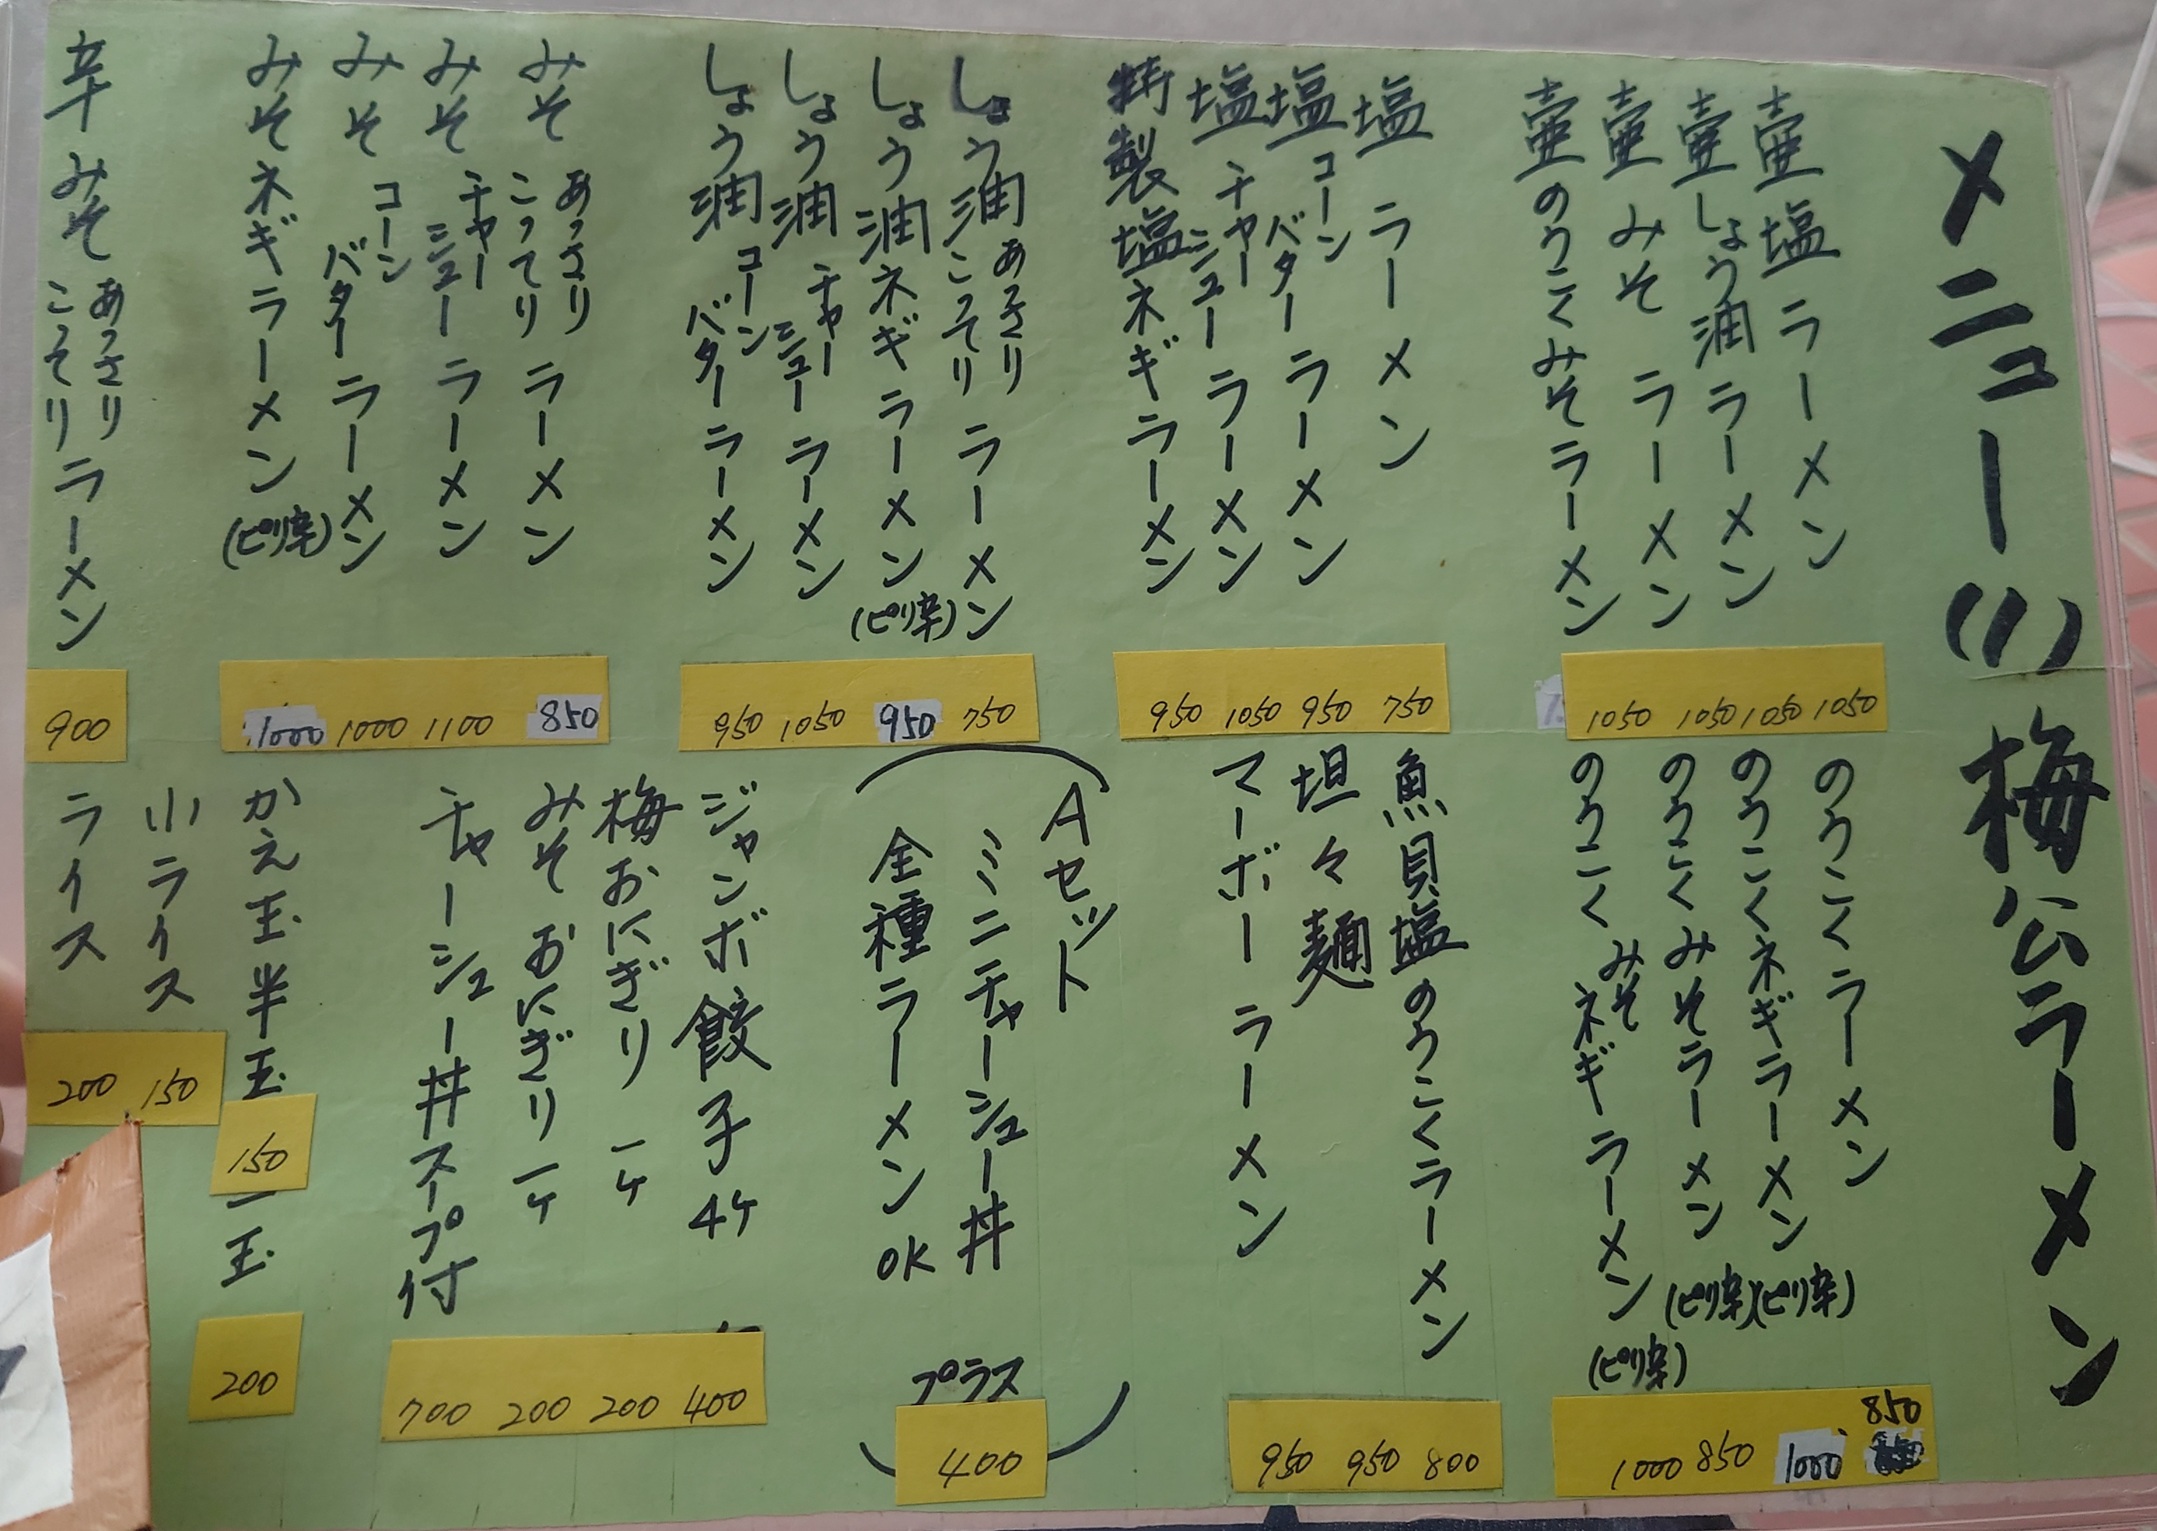 メニュー(1) 梅公ラーメン
壺塩ラーメン 1050
壺しょう油ラーメン 1050
壺みそラーメン 1050
壺のうこくみそラーメン 1050
塩ラーメン 750
塩コーンバターラーメン 950
塩チャーシューラーメン 1050
特製塩ネギラーメン 950
しょう油あっさりこってりラーメン 750
しょう油ネギラーメン(ピリ辛) 950
しょう油チャーシューラーメン 1050
しょう油コーンバターラーメン 950
みそあっさりこってりラーメン 850
みそチャーシューラーメン 1100
みそコーンバターラーメン 1000
みそネギラーメン(ピリ辛) 1000
辛みそあっさりこってりラーメン 900
のうこくラーメン 850
のうこくネギラーメン(ピリ辛) 1000
のうこくみそラーメン(ピリ辛) 850
のうこくみそネギラーメン(ピリ辛) 1000
魚貝塩のうこくラーメン 800
坦々麺 950
マーボーラーメン 950
Aセット
ミニチャーシュー丼
全種ラーメンOK
プラス 400
ジャンボ餃子4ケ 400
梅おにぎり一ケ 200
みそおにぎり一ケ 200
チャーシュー丼スープ付 700
かえ玉半玉 150
一玉 200
小ライス 150
ライス 200